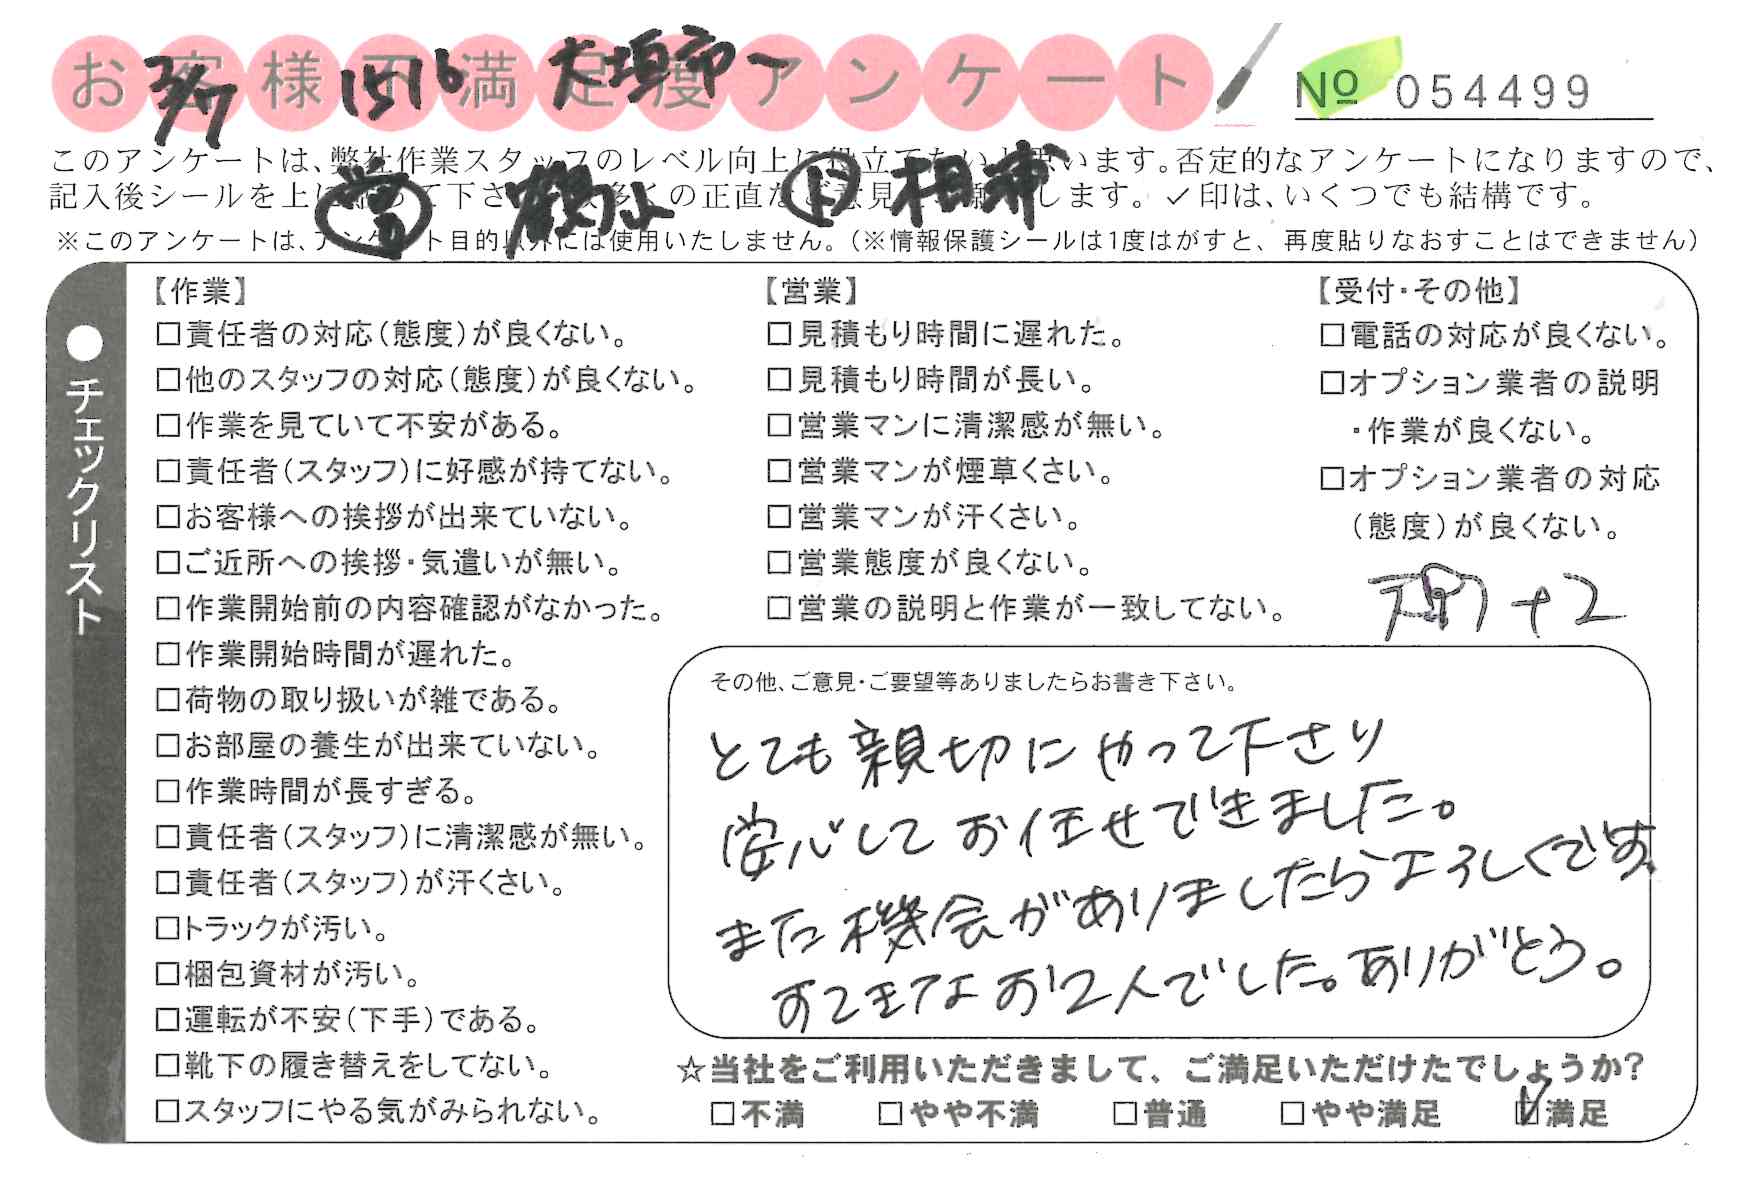 お客様不満足度アンケート
3/7 1516 大垣市〜
№ 054499
このアンケートは、弊社作業スタッフのレベル向上に役立てたいと思います。否定的なアンケートになりますので、
記入後シールを上に貼って下さい。数多くの正直なご意見をお願いします。✓印は、いくつでも結構です。
※このアンケートは、アンケート目的以外には使用いたしません。(※情報保護シールは1度はがすと、再度貼りなおすことはできません)
営 鶴山 相浦
●チェックリスト
【作業】
□責任者の対応(態度)が良くない。
□他のスタッフの対応(態度)が良くない。
□作業を見ていて不安がある。
□責任者(スタッフ)に好感が持てない。
□お客様への挨拶が出来ていない。
□ご近所への挨拶・気遣いが無い。
□作業開始前の内容確認がなかった。
□作業開始時間が遅れた。
□荷物の取り扱いが雑である。
□お部屋の養生が出来ていない。
□作業時間が長すぎる。
□責任者(スタッフ)に清潔感が無い。
□責任者(スタッフ)が汗くさい。
□トラックが汚い。
□梱包資材が汚い。
□運転が不安(下手)である。
□靴下の履き替えをしてない。
□スタッフにやる気がみられない。
【営業】
□見積もり時間に遅れた。
□見積もり時間が長い。
□営業マンに清潔感が無い。
□営業マンが煙草くさい。
□営業マンが汗くさい。
□営業態度が良くない。
□営業の説明と作業が一致してない。
【受付・その他】
□電話の対応が良くない。
□オプション業者の説明
・作業が良くない。
□オプション業者の対応
(態度)が良くない。
+2
その他、ご意見・ご要望等ありましたらお書き下さい。
とても親切にやって下さり
安心してお任せできました。
また機会がありましたらよろしくです
すてきなお2人でした。ありがとう。
☆当社をご利用いただきまして、ご満足いただけたでしょうか?
□不満 □やや不満 □普通 □やや満足 ☑満足